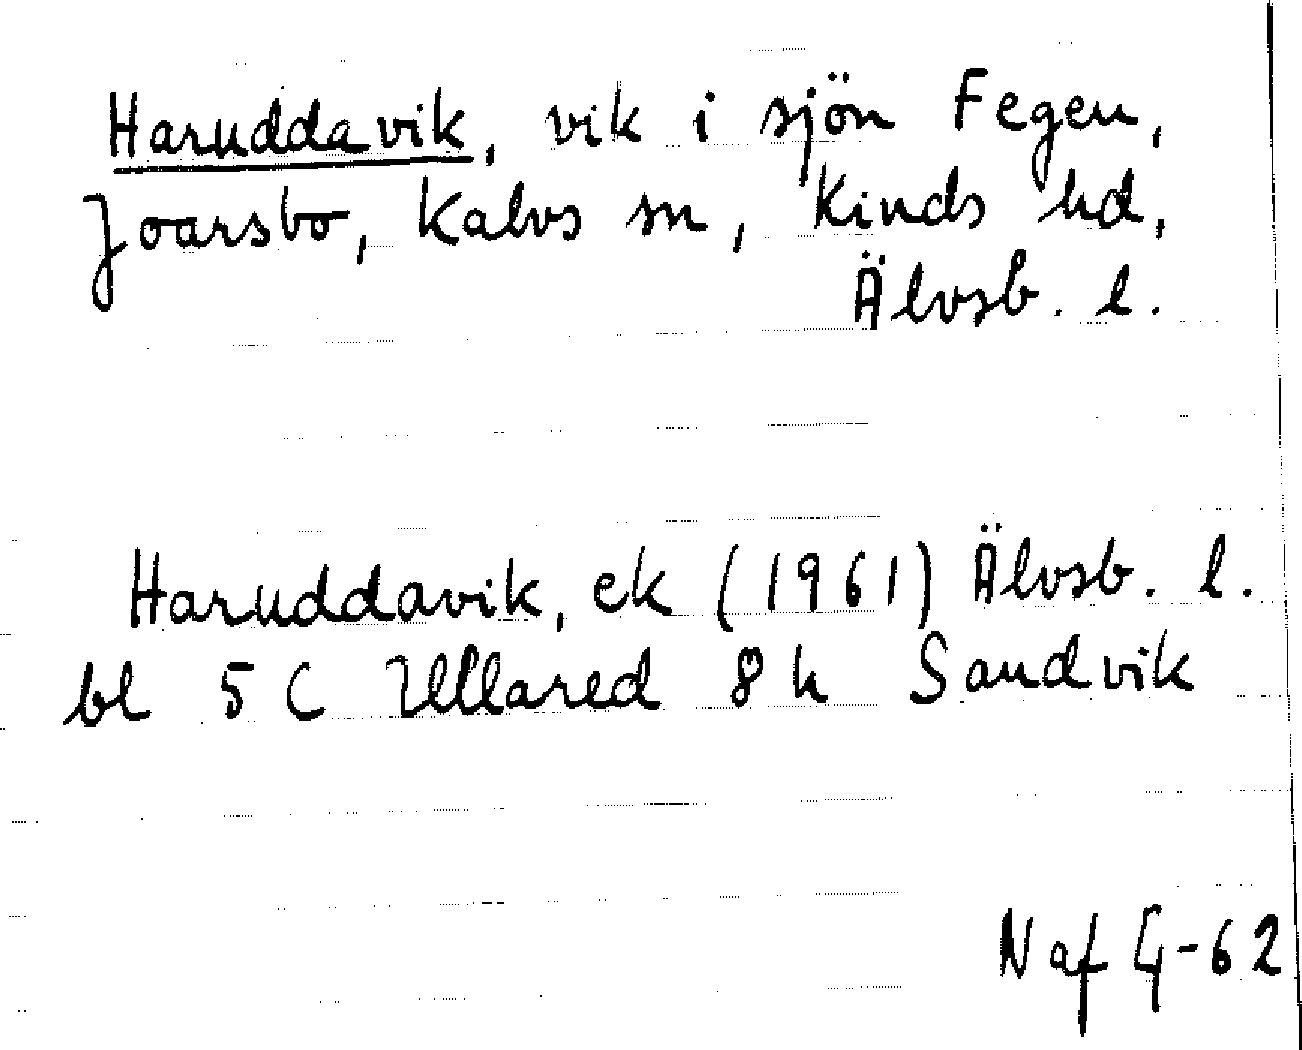 Haruddavik, vik i sjön Fegen,
Joarsbo, Kalvs sn, Kinds hd,
Älvsb. l.
Haruddavik, ek (1961) Älvsb. l.
bl 5 C Ullared 8 h Sandvik
N af G-62